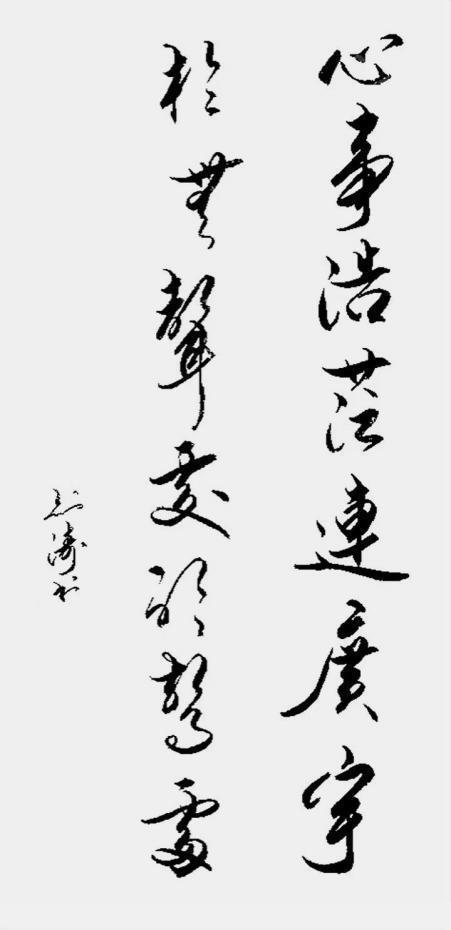 心事浩茫連廣宇
於無聲處聽驚雷
濤书